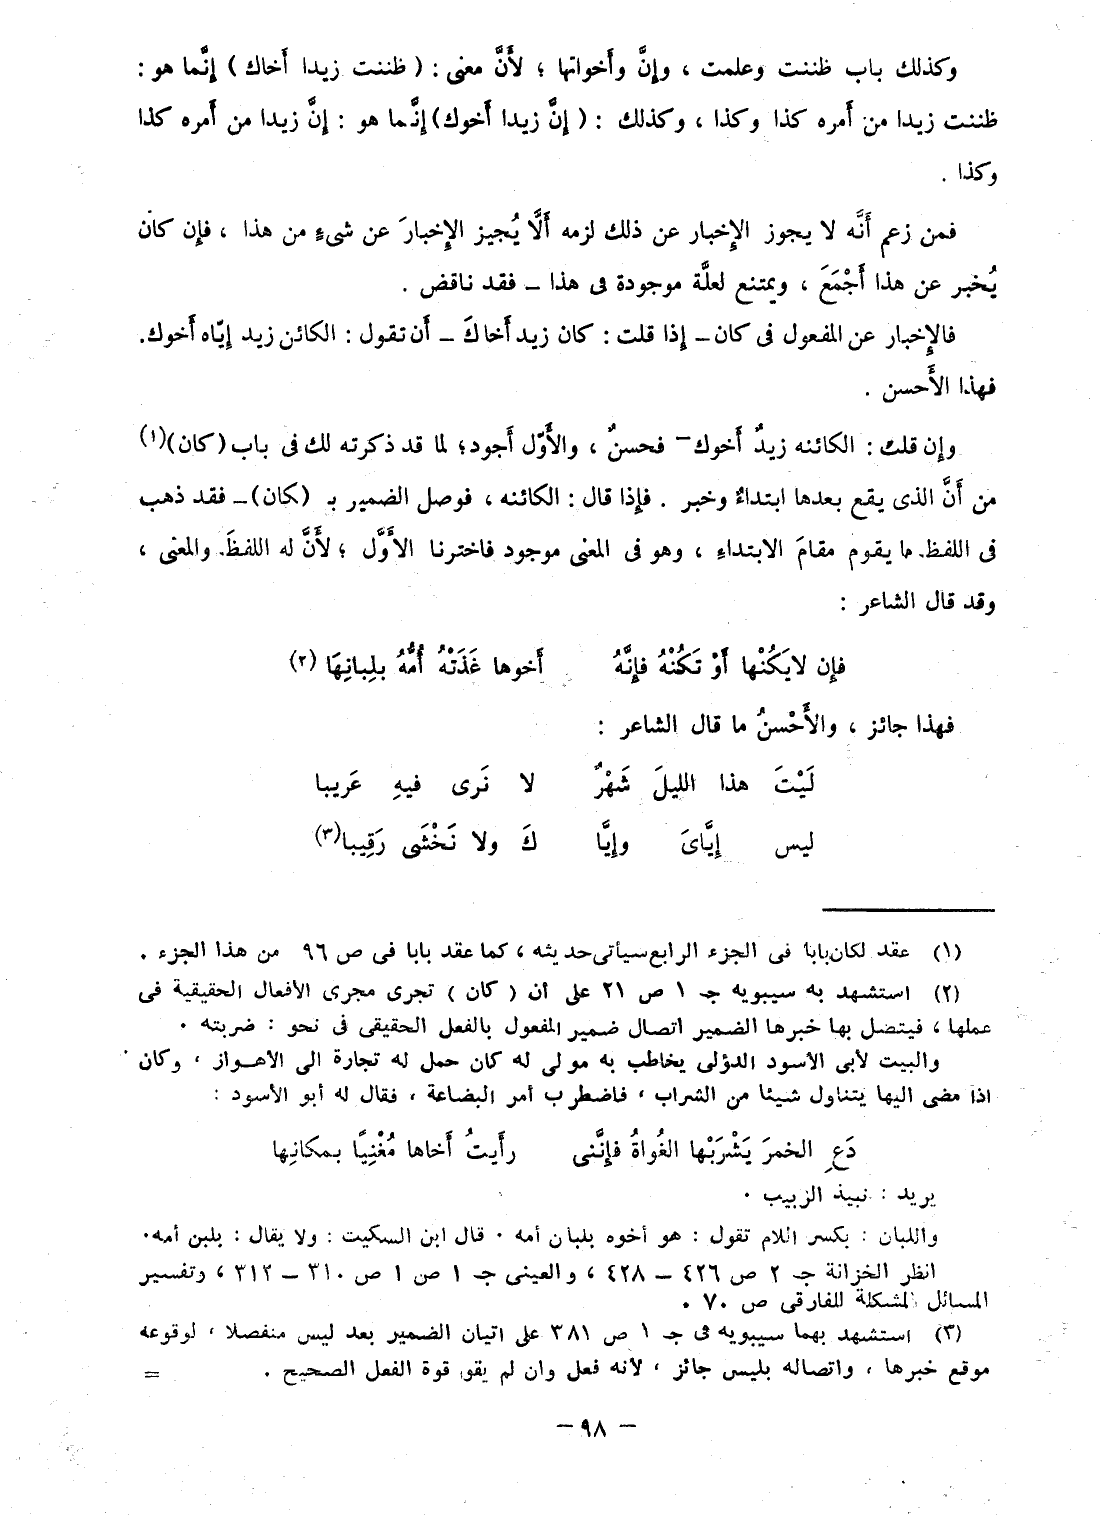 وكذلك باب ظننت وعلمت ، وإنَّ وأَخواتها ؛ لأَنَّ معنى : ( ظننت زيدا أَخاك ) إنَّما هو :
ظننت زيدا من أَمره كذا وكذا ، وكذلك : ( إنَّ زيدا أَخوك) إنَّما هو : إنَّ زيدا من أَمره كذا
وكذا .
فمن زعم أَنَّه لا يجوز الإِخبار عن ذلك لزمه أَلَّا يُجيز الإِخبارَ عن شىءٍ من هذا ، فإن كان
يُخبر عن هذا أَجْمَعَ ، ويمتنع لعلَّة موجودة فى هذا – فقد ناقض .
فالإِخبار عن المفعول فى كان – إذا قلت : كان زيد أَخاكَ – أَن تقول : الكائن زيد إيَّاه أَخوك.
فهذا الأَحسن .
وإن قلت : الكائنه زيدٌ أَخوك – فحسنٌ ، والأَوّل أَجود؛ لما قد ذكرته لك فى باب (كان)(١)
من أَنَّ الذى يقع بعدها ابتداءٌ وخبر . فإذا قال : الكائنه ، فوصل الضمير بـ (كان) – فقد ذهب
فى اللفظ ما يقوم مقامَ الابتداءِ ، وهو فى المعنى موجود فاخترنا الأَوَّل ؛ لأَنَّ له اللفظَ والمعنى ،
وقد قال الشاعر :
فإن لايَكُنْها أَوْ تَكُنْهُ فإنَّهُ أَخوها غَذَتْهُ أُمُّهُ بلِبانِهَا (٢)
فهذا جائز ، والأَحْسنُ ما قال الشاعر :
لَيْتَ هذا الليلَ شَهْرٌ لا نَرى فيهِ عَريبا
ليس إيَّاىَ وإيَّا كَ ولا نَخْشَى رَقِيبا(٣)
(١) عقد لكان بابا فى الجزء الرابع سيأتى حديثه ، كما عقد بابا فى ص ٩٦ من هذا الجزء .
(٢) استشهد به سيبويه جـ ١ ص ٢١ على أن ( كان ) تجرى مجرى الأفعال الحقيقية فى
عملها ، فيتصل بها خبرها الضمير اتصال ضمير المفعول بالفعل الحقيقى فى نحو : ضربته .
والبيت لأبى الأسود الدؤلى يخاطب به مولى له كان حمل له تجارة الى الأهواز ، وكان
اذا مضى اليها يتناول شيئا من الشراب ، فاضطرب أمر البضاعة ، فقال له أبو الأسود :
دَعِ الخمرَ يَشْرَبْها الغُواةُ فإنَّنى رأَيتُ أَخاها مُغْنِيًا بمكانِها
يريد : نبيذ الزبيب .
واللبان : بكسر اللام تقول : هو أخوه بلبان أمه . قال ابن السكيت : ولا يقال : بلبن أمه.
انظر الخزانة جـ ٢ ص ٤٢٦ – ٤٢٨ ، والعينى جـ ١ ص ١ ص ٣١٠ – ٣١٢ ، وتفسير
المسائل المشكلة للفارقى ص ٧٠ .
(٣) استشهد بهما سيبويه فى جـ ١ ص ٣٨١ على اتيان الضمير بعد ليس منفصلا ، لوقوعه
موقع خبرها ، واتصاله بليس جائز ، لأنه فعل وان لم يقو قوة الفعل الصحيح . =
– ٩٨ –